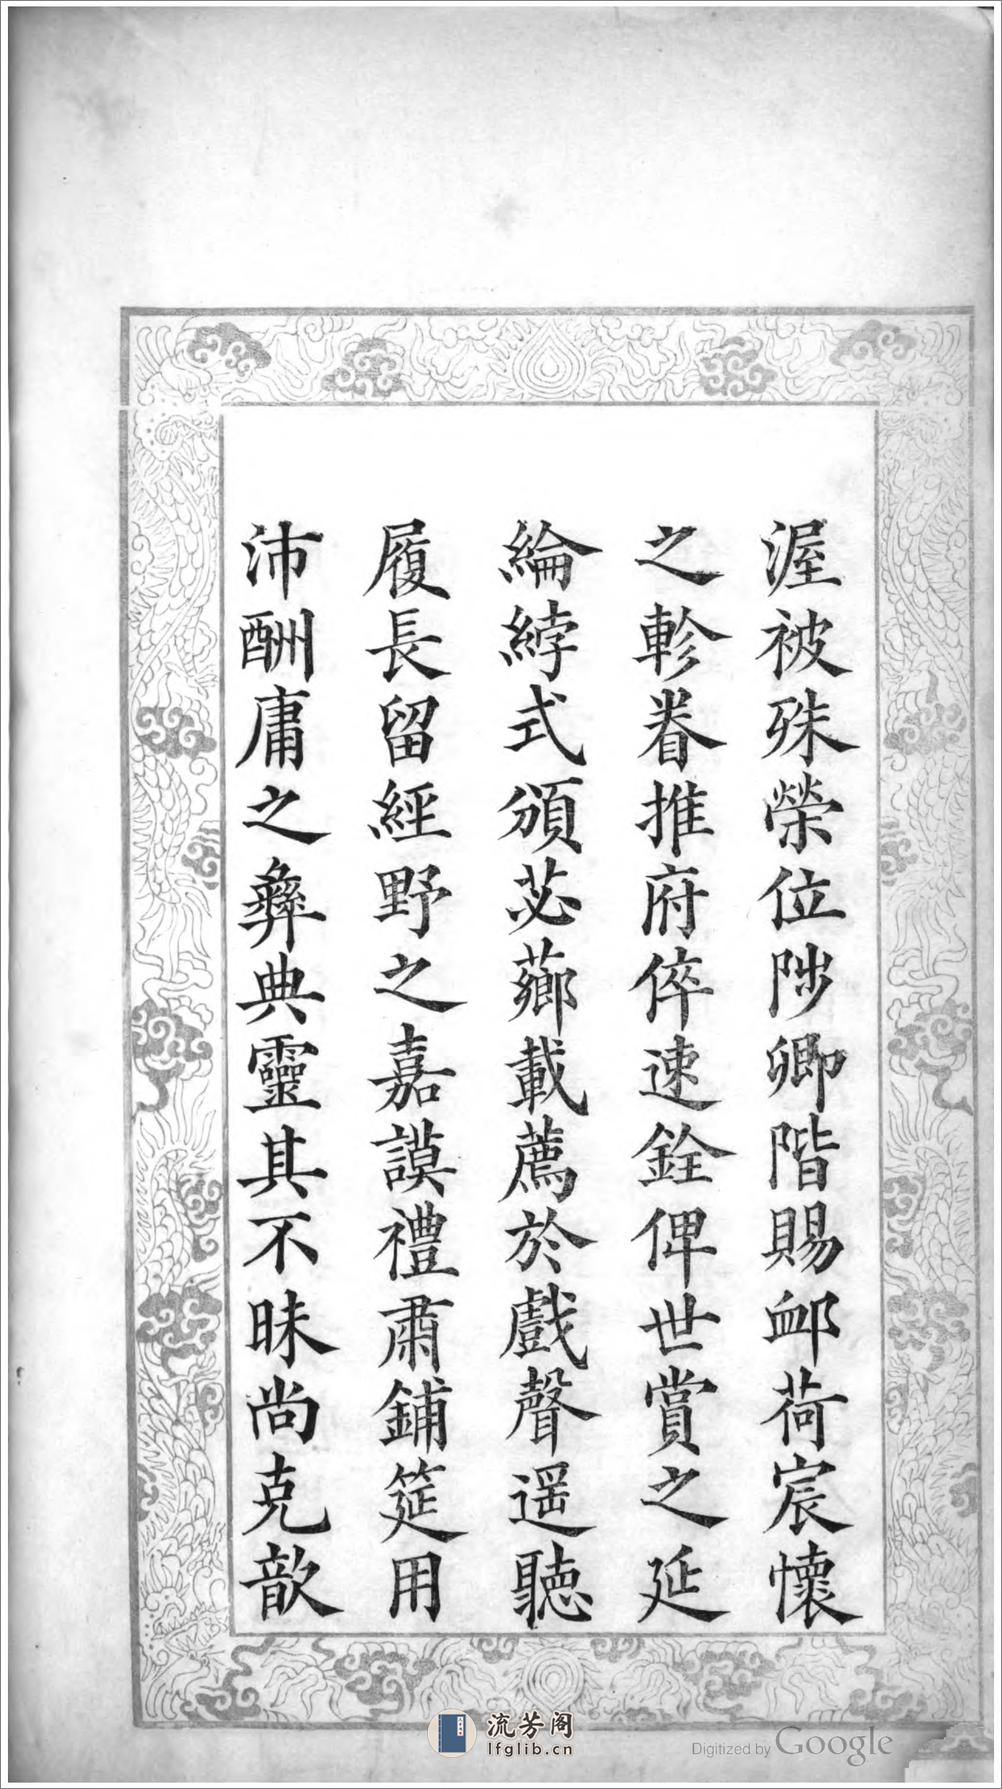 渥被殊榮位陟卿階賜卹荷宸懷
之軫眷推府倅速銓俾世賞之延
綸綍式頒苾薌載薦於戲聲遥聽
履長留經野之嘉謨禮肅鋪筵用
沛酬庸之彝典靈其不昧尚克歆
流芳阁
lfglib.cn
Digitized by Google